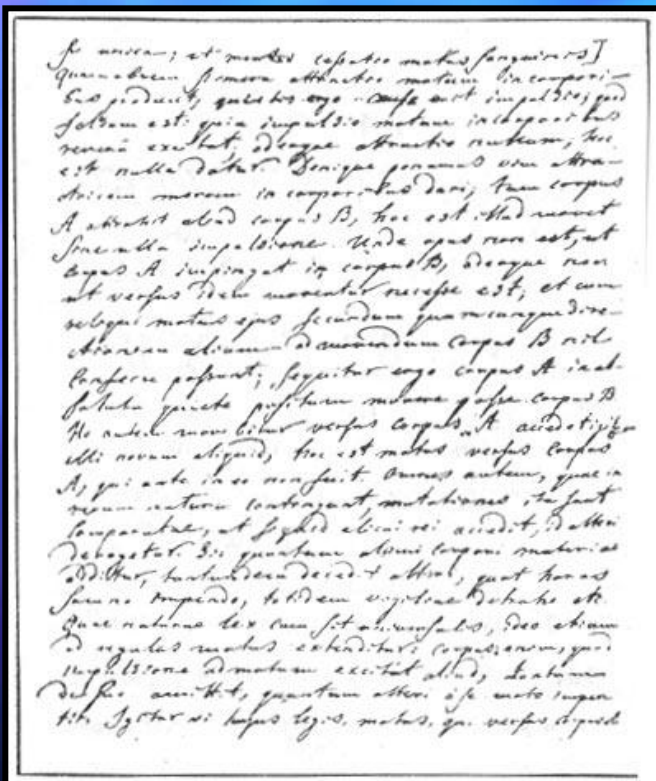 sit unica; et mortis cessatio motus sanguinis]
Quamobrem si mera attractio motum in corpori-
bus producit, quietis ergo causa erit impulsio; quod
falsum est: quia impulsio motum in corporibus
revera excitat; adeoque attractio nullum, hoc
est nulla datur. Denique ponamus vim attra-
ctricem meram in corporibus dari; tum corpus
A attrahit aliud corpus B, hoc est illud movet
sine ulla impulsione. Unde opus non est, ut
corpus A impingat in corpus B, adeoque non
ut versus idem moveatur necesse est; et cum
reliqui motus ejus secundum quamcunque dire-
ctionem alium ad movendum corpus B nil
conferre possunt; sequitur ergo corpus A in ab-
soluta quiete positum movere posse corpus B
Ho autem movebitur versus corpus A accedet igitur
illi novum aliquid, hoc est motus versus corpus
A, qui ante in eo non fuit. Omnes autem, quae in
rerum natura contingunt, mutationes ita sunt
comparatae, ut si quid alicui rei accedit, id alteri
derogetur. Sic quantum alicui corpori materiae
additur, tantundem decedit alteri, quot horas
somno impendo, totidem vigiliae detraho etc.
Quae naturae lex cum sit universalis, ideo etiam
ad regulas motus extenditur: corpus enim, quod
impulsione ad motum excitat aliud, tantum
de suo amittit, quantum alteri a se moto imper
tit. Igitur vi hujus legis, motus, qui versus corpus